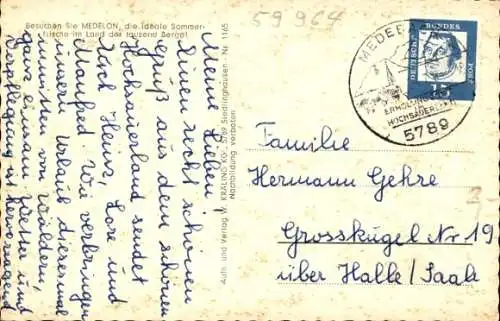 Besuchen Sie MEDELON, die ideale Sommer-
frische im Land der tausend Berge!
59964
Meine Lieben!
Einen recht schönen
Gruß aus dem schönen
Hochsauerland sendet
Euch Heinz, Lore und
Manfred. Wir verbringen
unseren Urlaub diesesmal
inmitten von Wäldern,
ganz einsam. Wetter und
Verpflegung ist hervorragend
Auth. und Verlag W. KRÄLING KG., 5789 Siedlinghausen - Nr. 1165
Nachbildung verboten
MEDEBACH
HOCHSAUERLAND
5789
DEUTSCHE BUNDESPOST
15
Familie
Hermann Gehre
Grosskugel Nr 19
über Halle/Saale